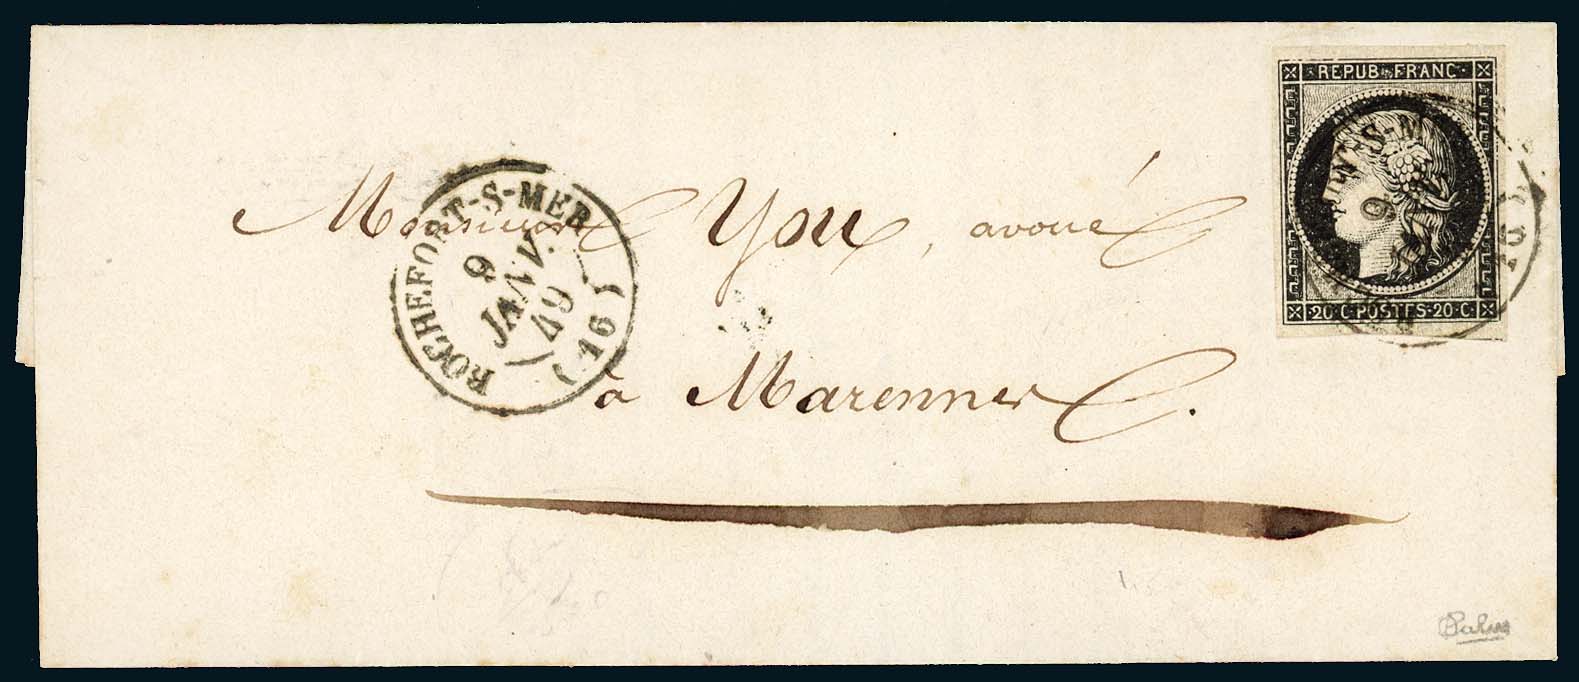 REPUB·FRANC·
20·C·POSTES·20·C·
ROCHEFORT-S-MER
6
JANV.
49
(16)
Monsieur You, avoué
à Marennes.